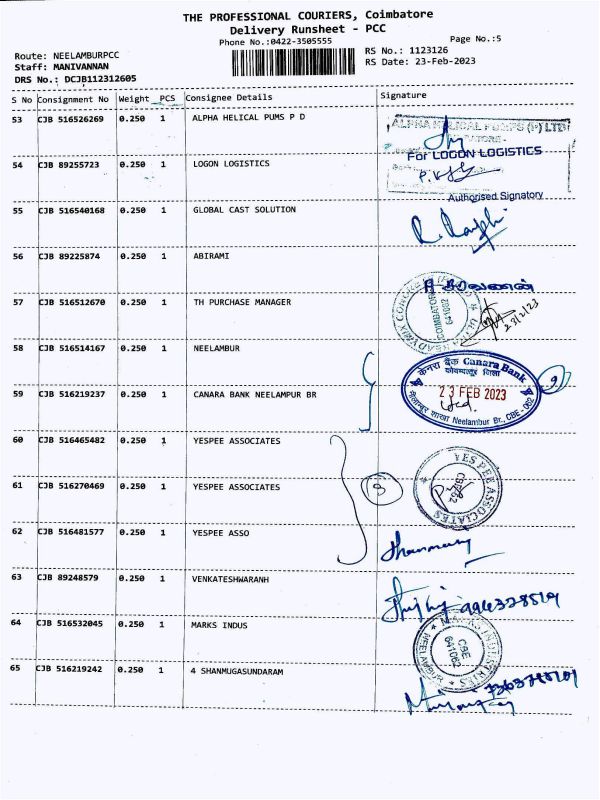 THE PROFESSIONAL COURIERS, Coimbatore
Delivery Runsheet - PCC
Phone No.:0422-3505555
Page No.:5
Route: NEELAMBURPCC
RS No.: 1123126
Staff: MANIVANNAN
RS Date: 23-Feb-2023
DRS No.: DCJB112312605
S No Consignment No Weight PCS Consignee Details Signature
53 CJB 516526269 0.250 1 ALPHA HELICAL PUMS P D
ALPHA HELICAL PUMPS (P) LTD
54 CJB 89255723 0.250 1 LOGON LOGISTICS
For LOGON LOGISTICS
Authorised Signatory
55 CJB 516540168 0.250 1 GLOBAL CAST SOLUTION
56 CJB 89225874 0.250 1 ABIRAMI
57 CJB 516512670 0.250 1 TH PURCHASE MANAGER
COIMBATORE
641062
23/2/23
58 CJB 516514167 0.250 1 NEELAMBUR
केनरा बैंक Canara Bank
कोयम्बत्तूर जिला
59 CJB 516219237 0.250 1 CANARA BANK NEELAMPUR BR
23 FEB 2023
Neelambur Br., CBE - 062
60 CJB 516465482 0.250 1 YESPEE ASSOCIATES
YES PEE ASSOCIATES
61 CJB 516270469 0.250 1 YESPEE ASSOCIATES
62 CJB 516481577 0.250 1 YESPEE ASSO
63 CJB 89248579 0.250 1 VENKATESHWARANH
64 CJB 516532045 0.250 1 MARKS INDUS
MARKS INDUSTRIES
NEELAMBUR
CBE
641062
65 CJB 516219242 0.250 1 4 SHANMUGASUNDARAM